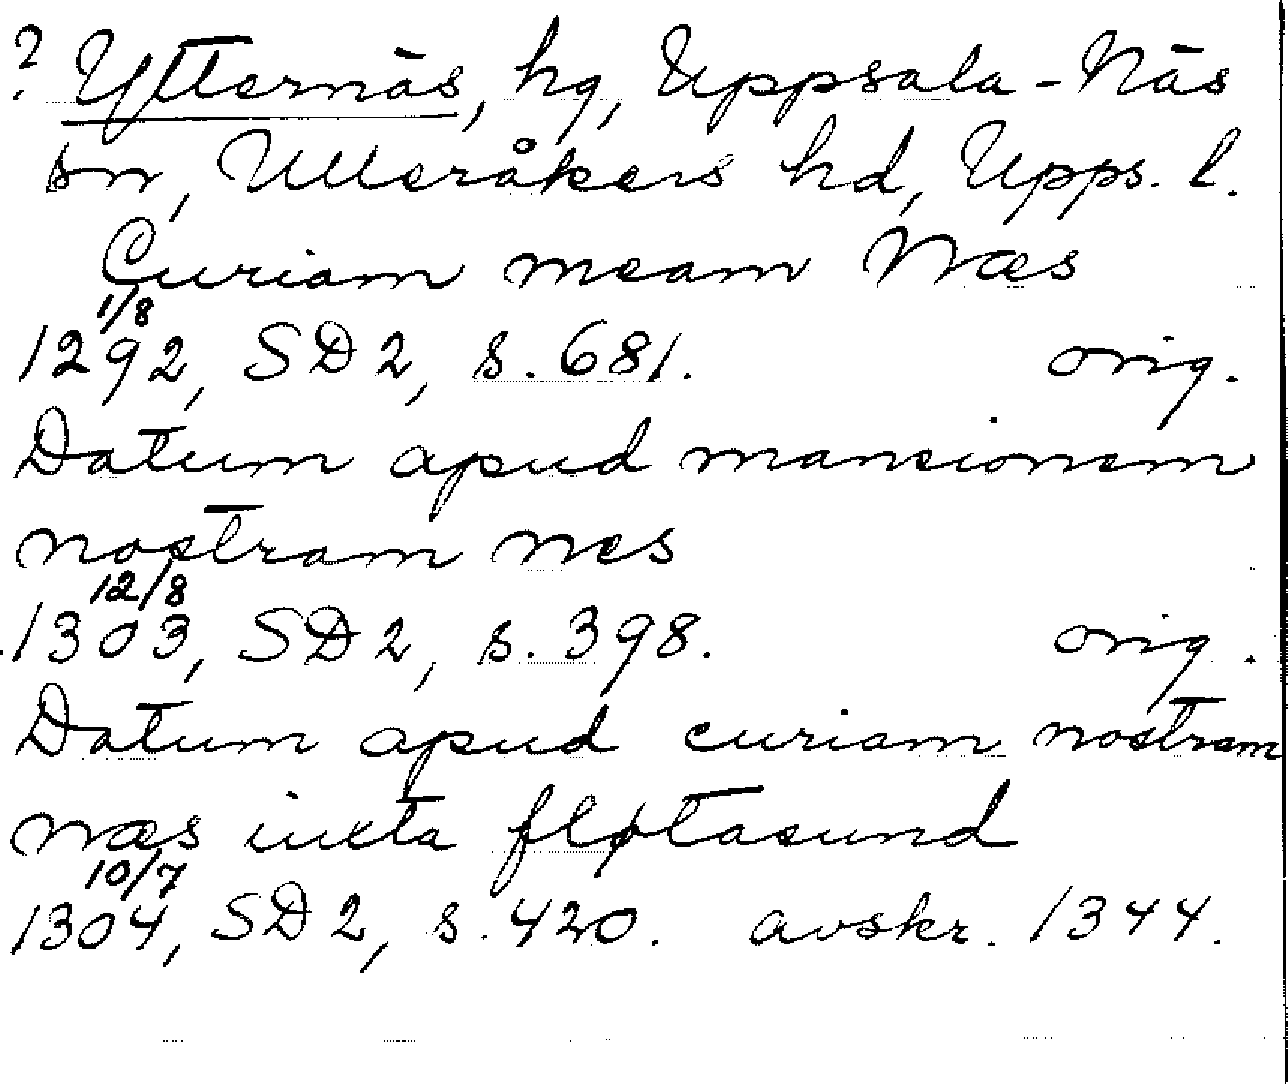 ? Ytternäs, hg, Uppsala-Näs
sn, Ulleråkers hd, Upps. l.
Curiam meam Næs
1/8
1292, SD 2, s. 681. orig.
Datum apud mansionem
nostram nes
12/8
1303, SD 2, s. 398. orig.
Datum apud curiam nostram
næs iuxta fløtasund
10/7
1304, SD 2, s. 420. avskr. 1344.